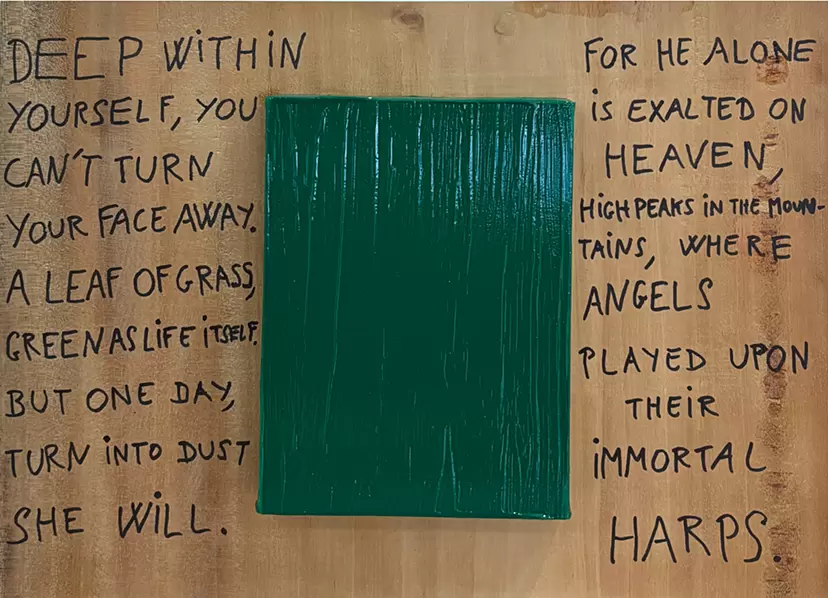 DEEP WiTHiN
YOURSELF, YOU
CAN'T TURN
YOUR FACE AWAY.
A LEAF OF GRASS,
GREEN AS LiFE iTSELF.
BUT ONE DAY,
TURN iNTO DUST
SHE WiLL.
FOR HE ALONE
iS EXALTED ON
HEAVEN,
HiGH PEAKS iN THE MOUN-
TAiNS, WHERE
ANGELS
PLAYED UPON
THEiR
iMMORTAL
HARPS.